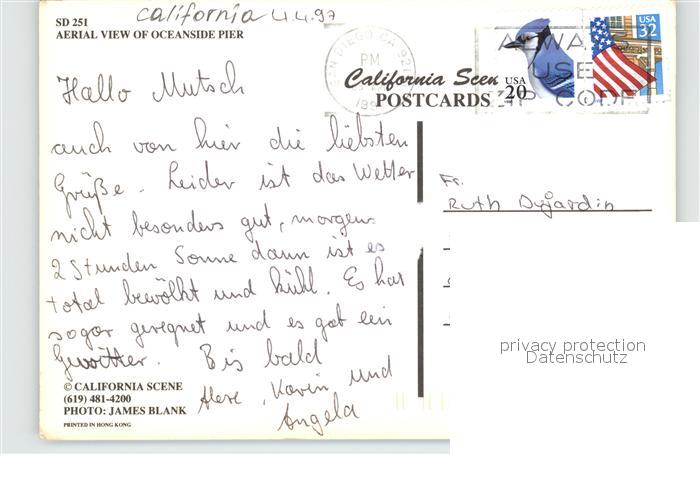 california 4.4.97
SD 251
AERIAL VIEW OF OCEANSIDE PIER
SAN DIEGO CA 921
PM
199
ALWAYS
USE
ZIP CODE
USA
20
USA
32
California Scene
POSTCARDS
Hallo Mutsch
auch von hier die liebsten
Grüße. Leider ist das Wetter
nicht besonders gut, morgens
2 Stunden Sonne dann ist es
total bewölkt und kühl. Es hat
sogar geregnet und es gab ein
Gewitter. Bis bald
Karin und
Angela
Fr.
Ruth Dujardin
© CALIFORNIA SCENE
(619) 481-4200
PHOTO: JAMES BLANK
PRINTED IN HONG KONG
privacy protection
Datenschutz